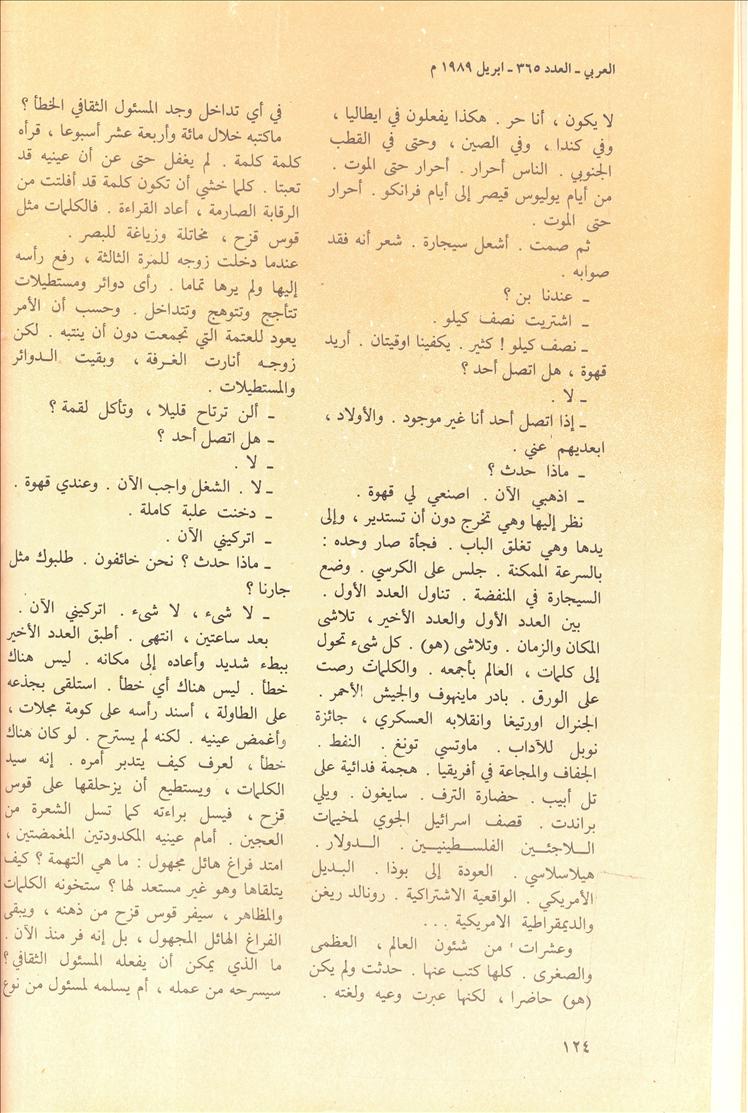 العربي ـ العدد ٣٦٥ ـ ابريل ١٩٨٩ م
لا يكون ، أنا حر . هكذا يفعلون في ايطاليا ،
وفي كندا ، وفي الصين ، وحتى في القطب
الجنوبي . الناس أحرار . أحرار حتى الموت .
من أيام يوليوس قيصر إلى أيام فرانكو . أحرار
حتى الموت .
ثم صمت . أشعل سيجارة . شعر أنه فقد
صوابه .
ـ عندنا بن ؟
ـ اشتريت نصف كيلو .
ـ نصف كيلو ! كثير . يكفينا اوقيتان . أريد
قهوة ، هل اتصل أحد ؟
ـ لا .
ـ إذا اتصل أحد أنا غير موجود . والأولاد ،
ابعديهم عني .
ـ ماذا حدث ؟
ـ اذهبي الآن . اصنعي لي قهوة .
نظر إليها وهي تخرج دون أن تستدير ، وإلى
يدها وهي تغلق الباب . فجأة صار وحده :
بالسرعة الممكنة . جلس على الكرسي . وضع
السيجارة في المنفضة . تناول العدد الأول .
بين العدد الأول والعدد الأخير ، تلاشى
المكان والزمان . وتلاشى (هو) . كل شىء تحول
إلى كلمات ، العالم بأجمعه . والكلمات رصت
على الورق . بادر ماينهوف والجيش الأحمر .
الجنرال اورتيغا وانقلابه العسكري ، جائزة
نوبل للآداب . ماوتسي تونغ . النفط .
الجفاف والمجاعة في أفريقيا . هجمة فدائية على
تل أبيب . حضارة الترف . سايغون . ويلي
براندت . قصف اسرائيل الجوي لمخيمات
الـلاجئـين الفلسـطينيـين . الـدولار .
هيلاسلاسي . العودة إلى بوذا . البديل
الأمريكي . الواقعية الاشتراكية . رونالد ريغن
والديمقراطية الامريكية . . .
وعشرات من شئون العالم ، العظمى
والصغرى . كلها كتب عنها . حدثت ولم يكن
(هو) حاضرا ، لكنها عبرت وعيه ولغته .
في أي تداخل وجد المسئول الثقافي الخطأ ؟
ماكتبه خلال مائة وأربعة عشر أسبوعا ، قرأه
كلمة كلمة . لم يغفل حتى عن أن عينيه قد
تعبتا . كلما خشي أن تكون كلمة قد أفلتت من
الرقابة الصارمة ، أعاد القراءة . فالكلمات مثل
قوس قزح ، مخاتلة وزياغة للبصر .
عندما دخلت زوجه للمرة الثالثة ، رفع رأسه
إليها ولم يرها تماما . رأى دوائر ومستطيلات
تتأجج وتتوهج وتتداخل . وحسب أن الأمر
يعود للعتمة التي تجمعت دون أن ينتبه . لكن
زوجـه أنارت الغـرفة ، وبقيت الـدوائر
والمستطيلات .
ـ ألن ترتاح قليلا ، وتأكل لقمة ؟
ـ هل اتصل أحد ؟
ـ لا .
ـ لا . الشغل واجب الآن . وعندي قهوة .
ـ دخنت علبة كاملة .
ـ اتركيني الآن .
ـ ماذا حدث ؟ نحن خائفون . طلبوك مثل
جارنا ؟
ـ لا شىء ، لا شىء . اتركيني الآن .
بعد ساعتين ، انتهى . أطبق العدد الأخير
ببطء شديد وأعاده إلى مكانه . ليس هناك
خطأ . ليس هناك أي خطأ . استلقى بجذعه
على الطاولة ، أسند رأسه على كومة مجلات ،
وأغمض عينيه . لكنه لم يسترح . لو كان هناك
خطأ ، لعرف كيف يتدبر أمره . إنه سيد
الكلمات ، ويستطيع أن يزحلقها على قوس
قزح ، فيسل براءته كما تسل الشعرة من
العجين . أمام عينيه المكدودتين المغمضتين ،
امتد فراغ هائل مجهول : ما هي التهمة ؟ كيف
يتلقاها وهو غير مستعد لها ؟ ستخونه الكلمات
والمظاهر ، سيفر قوس قزح من ذهنه ، ويبقى
الفراغ الهائل المجهول ، بل إنه فر منذ الآن .
ما الذي يمكن أن يفعله المسئول الثقافي ؟
سيسرحه من عمله ، أم يسلمه لمسئول من نوع
١٢٤